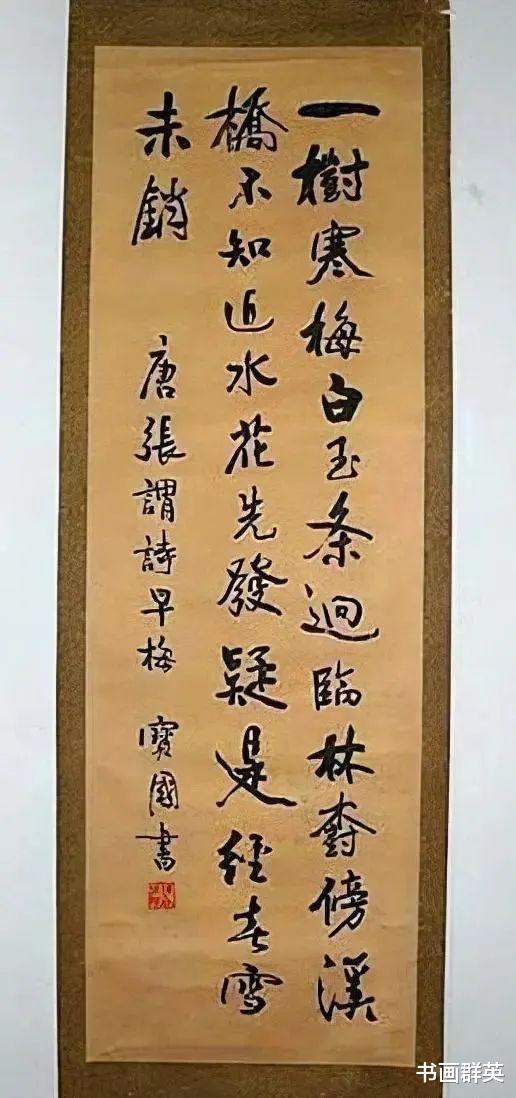 一樹寒梅白玉条逈臨林傍溪
橋不知近水花先發疑是經春雪
未銷 唐張謂詩早梅 寶國書
书画群英